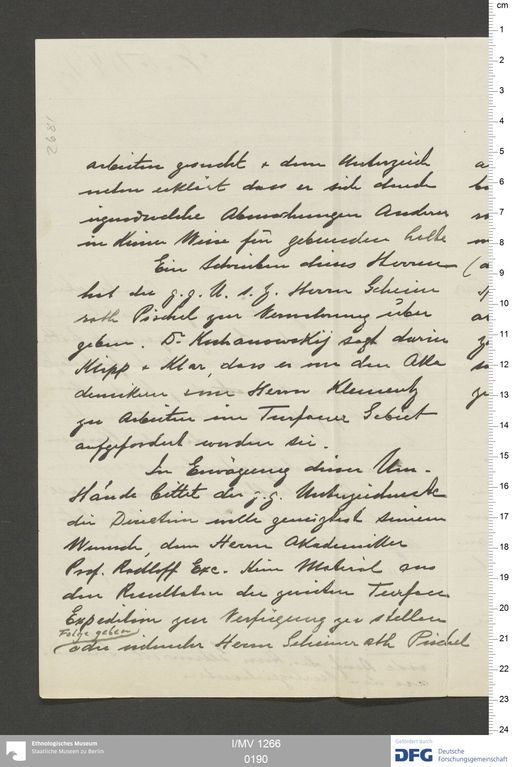 1892
arbeiten gesucht + dem Unterzeich
neten erklärt dass er sich durch
irgendwelche Abmachungen Anderer
in keiner Weise für gebunden halte
Ein Schreiben dieses Herren
hat der g. g. U. s. Z. Herrn Geheim
rath Pischel zur Verwahrung über
geben. Dr. Kochanowskij sagt darin
Klipp + Klar, dass er von den Aka
demikern und Herrn Klementz
zu Arbeiten im Turfaner Gebiet
aufgefordert worden sei.
In Erwägung dieser Um-
stände bittet der g. g. Unterzeichnete
die Direction wolle geneigtest seinem
Wunsch, dem Herrn Akademiker
Prof. Radloff Exc. Kein Material aus
den Resultaten der zweiten Turfan
Expedition zur Verfügung zu stellen
Folge geben
oder vielmehr Herrn Geheimrath Pischel
Ethnologisches Museum
Staatliche Museen zu Berlin
I/MV 1266
0190
Gefördert durch
DFG Deutsche
Forschungsgemeinschaft
cm
1
2
3
4
5
6
7
8
9
10
11
12
13
14
15
16
17
18
19
20
21
22
23
24